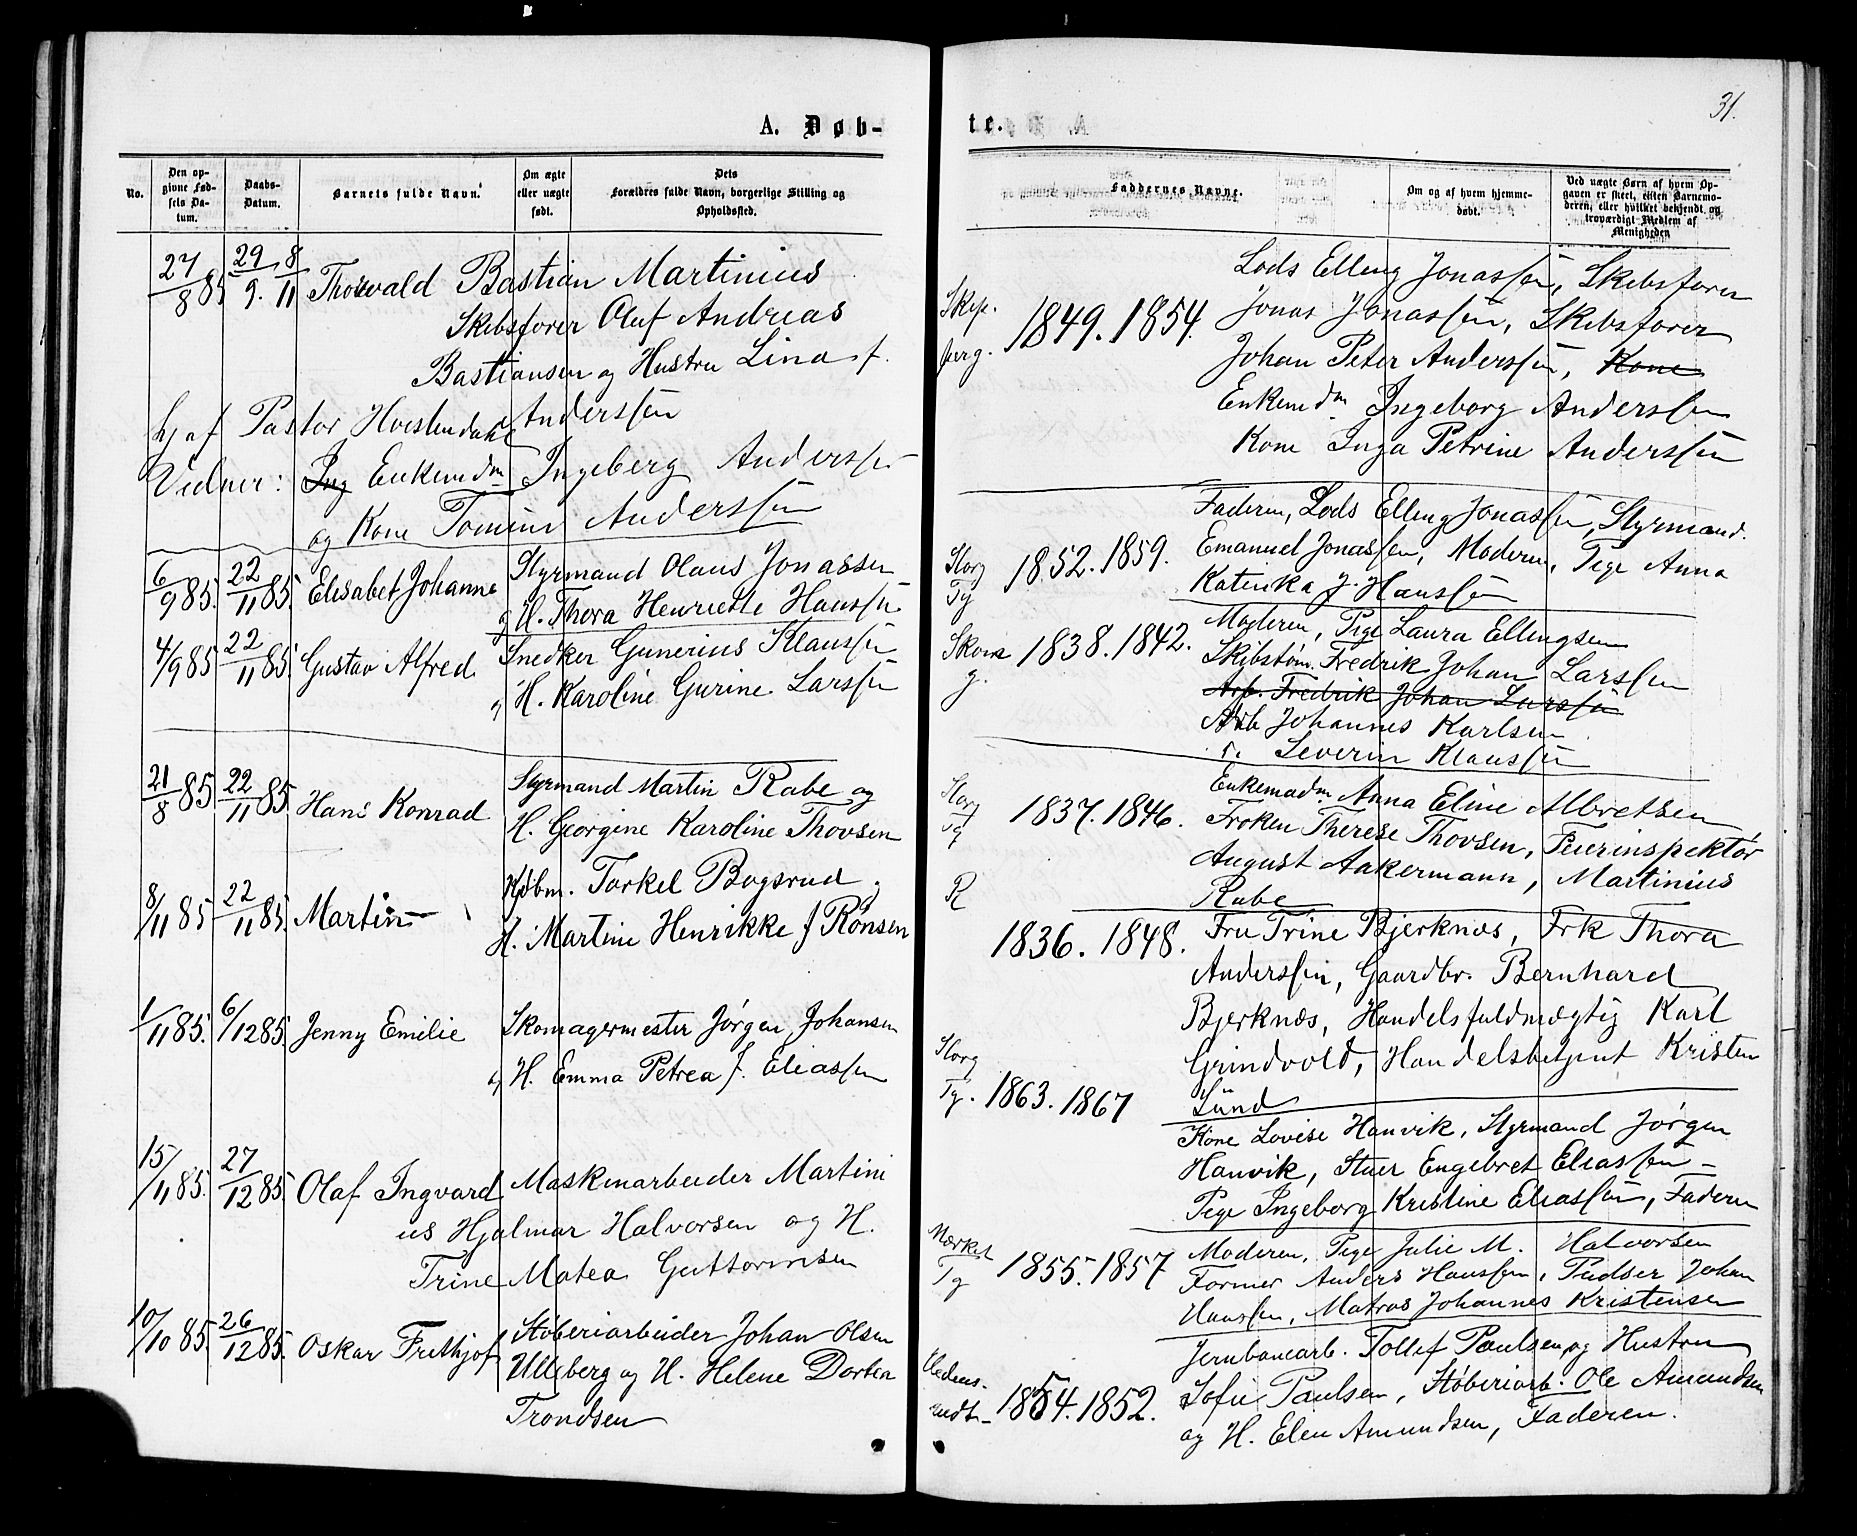 A. Døb-
No.
Den op-
givne Fød-
sels Da-
tum.
Daabs-
Datum.
Barnets fulde Navn.
Om ægte
eller uægte
født.
Dets
Forældres fulde Navn, borgerlige Stilling og
Opholdssted.
27/8 85 29/9. 8/11 Thorvald Bastian Martinius
Skibsfører Oluf Andreas
Bastiansen og Hustru Lina f.
Anderssen
hj af Pastor
Vidner: Ing Enkemdm Ingeberg Anderssen
og Kone Tomine Anderssen
6/9 85. 22/11 85. Elisabet Johanne Styrmand Olaus Jonassen
og H. Thora Henriette Hanssen
4/9 85 22/11 85. Gustav Alfred Snedker Gunerius Klaussen
og H. Karoline Gurine Larssen
21/8 85 22/11 85. Hans Konrad Styrmand Martin Rabe og
H. Georgine Karoline Thovsen
8/11 85 22/11 85. Martin Kjøbm. Torkel Bogsrud og
H. Martine Henrikke f Rönsen
1/11 85. 6/12 85. Jenny Emilie Skomagermester Jørgen Johansen
og H. Emma Petrea f. Eliassen
15/11 85. 27/12 85. Olaf Ingvard Maskinarbeider Martini
us Hjalmar Halvorsen og H.
Trine Matea Guttormsen
10/10 85. 26/12 85. Oskar Frithjof Støberiarbeider Johan Olsen
Ulleberg og H. Helene Dortea
Trondsen
te.
31.
Faddernes Navne.
Om og af hvem hjemme-
døbt.
Ved uægte Børn af hvem Op-
gaven er skeet, enten Barnemo-
deren, eller hvilket bekjendt og
troværdigt Medlem af
Menigheden
Lods Elling Jonassen, Skibsfører
1849. 1854. Jonas Jonassen, Skibsfører
Johan Peter Anderssen, Kone
Enkemdm Ingeborg Anderssen
Kone Inga Petrine Anderssen
Faderen, Lods Elling Jonassen, Styrmand.
Storg
Tg
1852. 1859. Emanuel Jonassen, Moderen, Pige Anna
Katinka J. Hanssen
1838. 1842. Moderen, Pige Laura Ellingsen
Skibstøm. Fredrik Johan Larssen
Arb. Fredrik Johan Larssen
Arb Johannes Karlsen
Severin Klaussen
Storg
Tg
1837. 1846. Enkemadm Anna Eline Albretsen
Frøken Therese Thovsen, Feierinspektør
August Aakermann, Martinius
Rabe
R
1836. 1848. Fru Trine Bjerknæs, Frk Thora
Anderssen, Gaardbr. Bernhard
Bjerknæs, Handelsfuldmægtig Karl
Grindvold, Handelsbetjent Kristen
Lünd
Storg
Tg. 1863. 1867
Kone Lovise Hanvik, Styrmand Jørgen
Hanvik, Stuer Engebret Eliassen
Pige Ingeborg Kristine Eliassen, Faderen
Mørket
Tg 1855. 1857 Moderen, Pige Julie M. Halvorsen
Former Anders Hanssen, Pudser Johan
Hanssen, Matros Johannes Kristensen
Jernbanearb. Tollef Paulsen og Hustru
1854. 1852. Sofie Paulsen, Støberiarb. Ole Amundsen
og H. Elen Amundsen, Faderen.